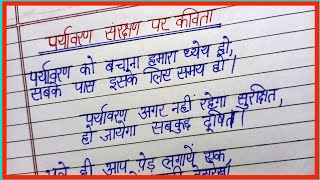 पर्यावरण संरक्षण पर कविता
पर्यावरण को बचाना हमारा ध्येय हो,
सबके पास इसके लिए समय हो।
पर्यावरण अगर नहीं रहेगा सुरक्षित,
हो जायेगा सबकुछ दूषित।
भले ही आप पेड़ लगाये एक